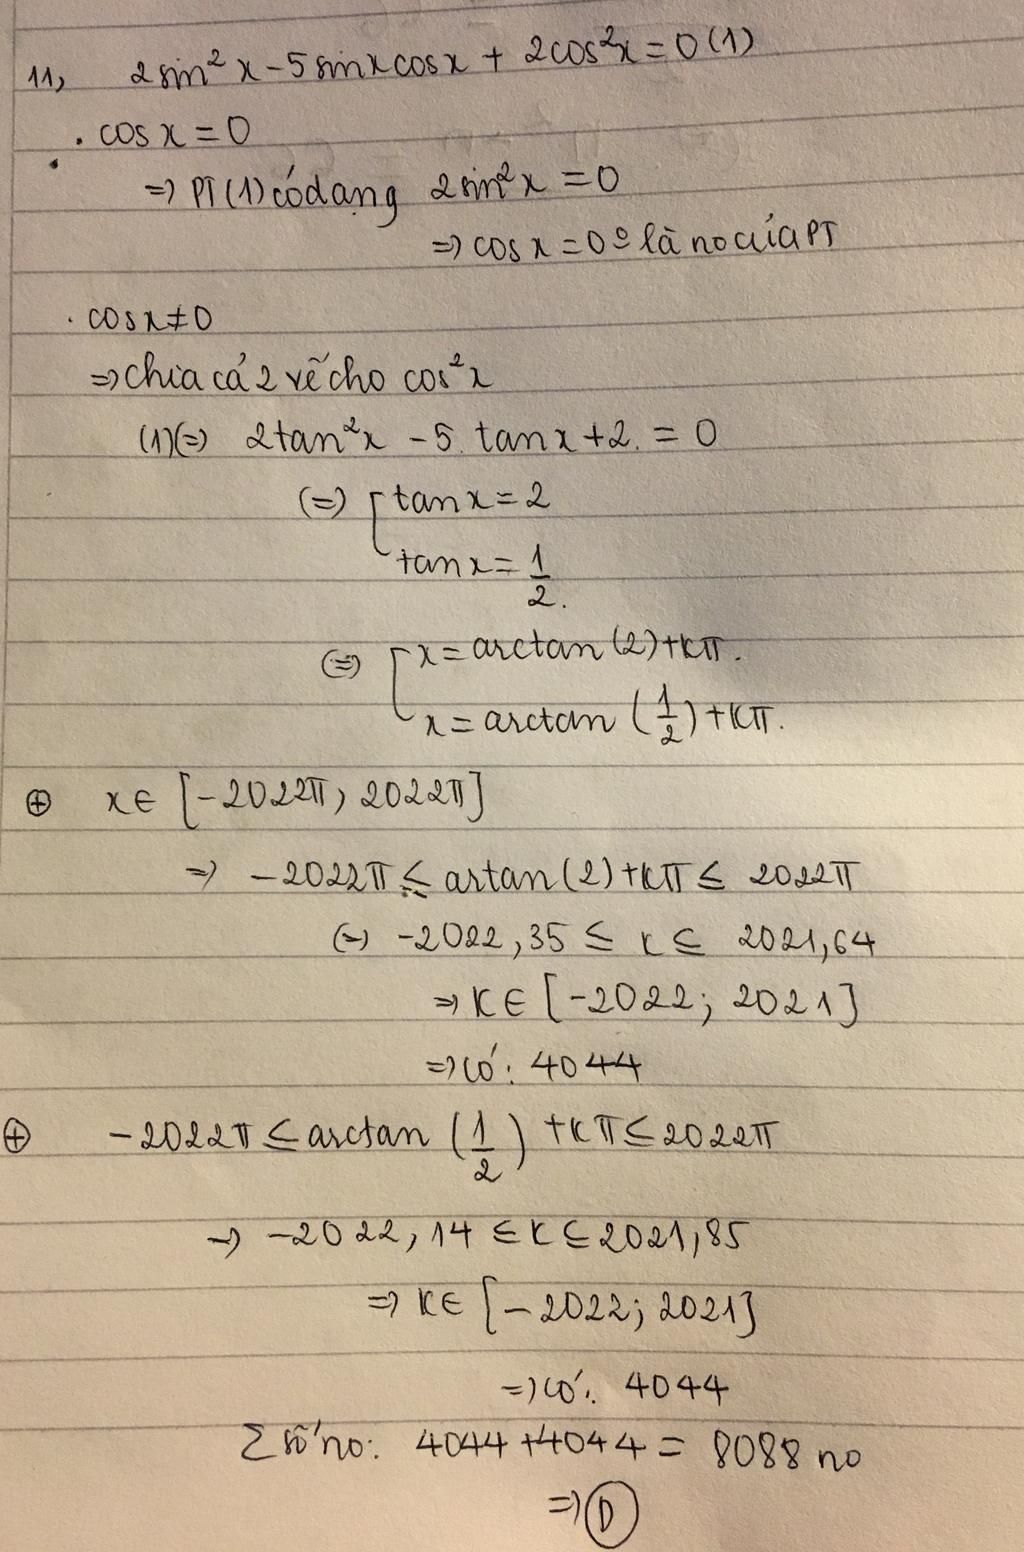 11, 2sin²x - 5sinxcosx + 2cos²x = 0 (1)
. cosx = 0
=> PT(1) có dạng 2sin²x = 0
=> cosx = 0 là no của PT
. cosx ≠ 0
=> chia cả 2 vế cho cos²x
(1)(=) 2tan²x - 5.tanx + 2. = 0
(=) [ tanx = 2
tanx = 1/2.
(=) [ x = arctan(2) + kπ.
x = arctan(1/2) + kπ.
⊕ x ∈ [-2022π; 2022π]
=> -2022π ≤ artan(2) + kπ ≤ 2022π
(=) -2022,35 ≤ k ≤ 2021,64
=> k ∈ [-2022; 2021]
=> có: 4044
⊕ -2022π ≤ arctan(1/2) + kπ ≤ 2022π
=> -2022,14 ≤ k ≤ 2021,85
=> k ∈ [-2022; 2021]
=> có: 4044
Σ số no: 4044 + 4044 = 8088 no
=> D